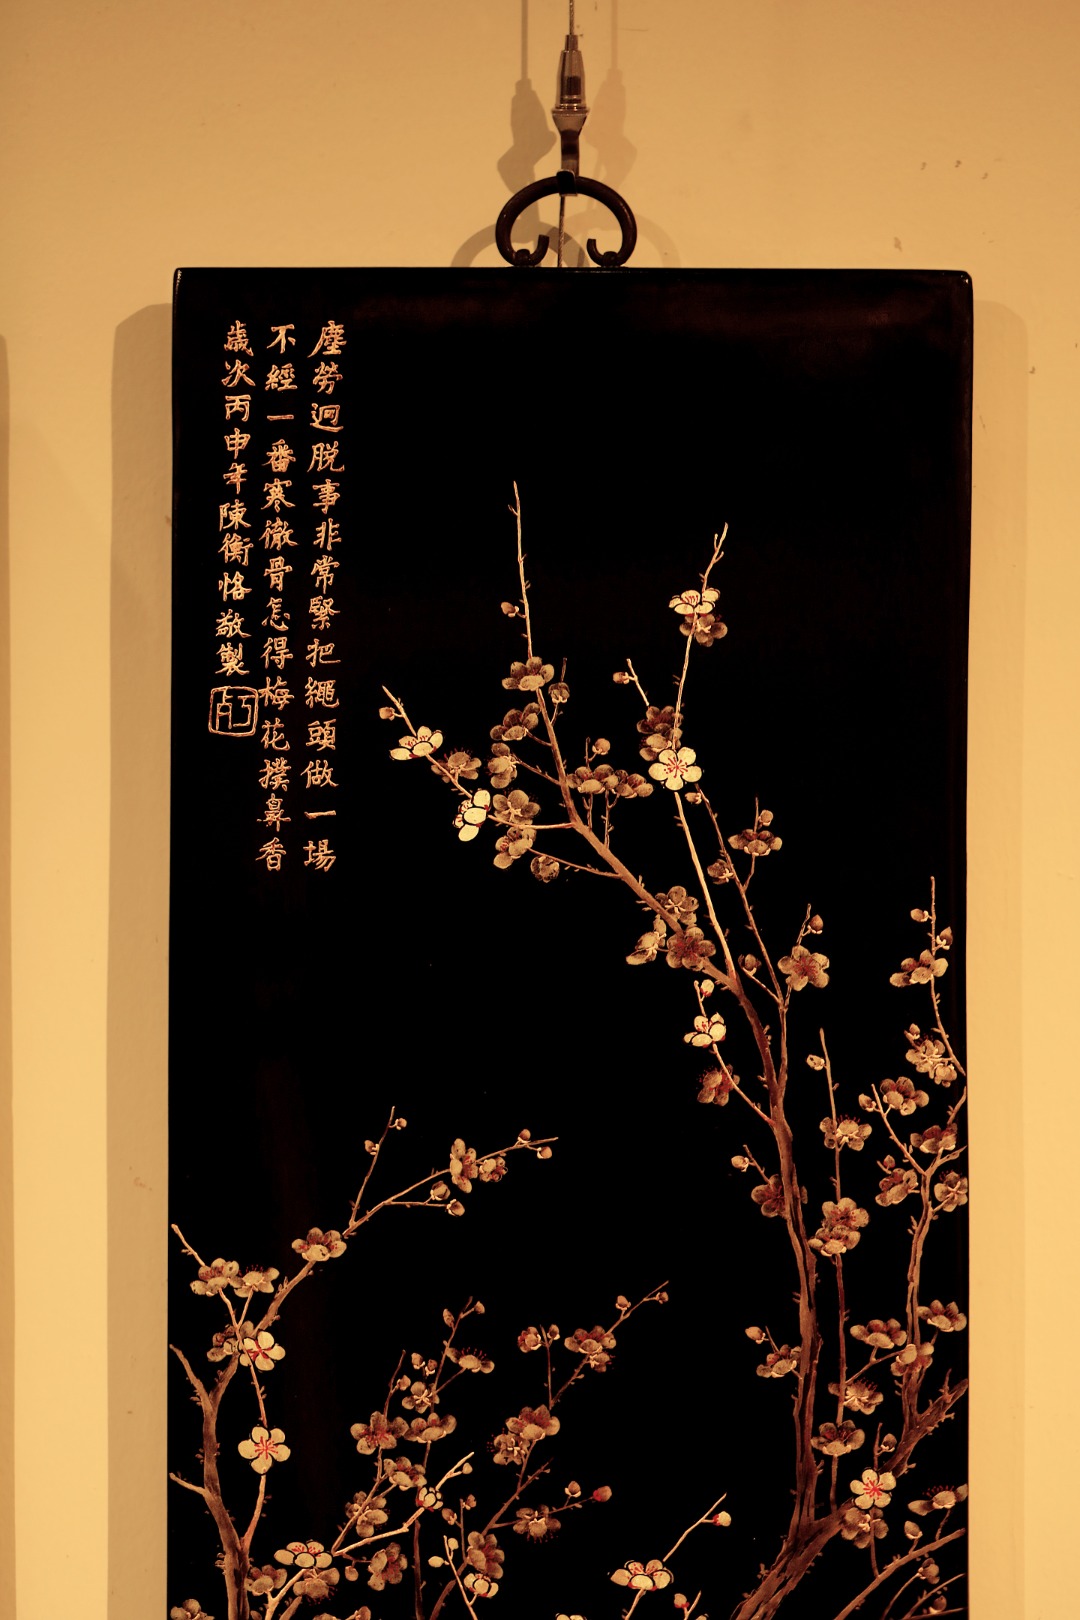 塵勞迥脱事非常緊把繩頭做一場
不經一番寒徹骨怎得梅花撲鼻香
歲次丙申年陳衡恪敬製